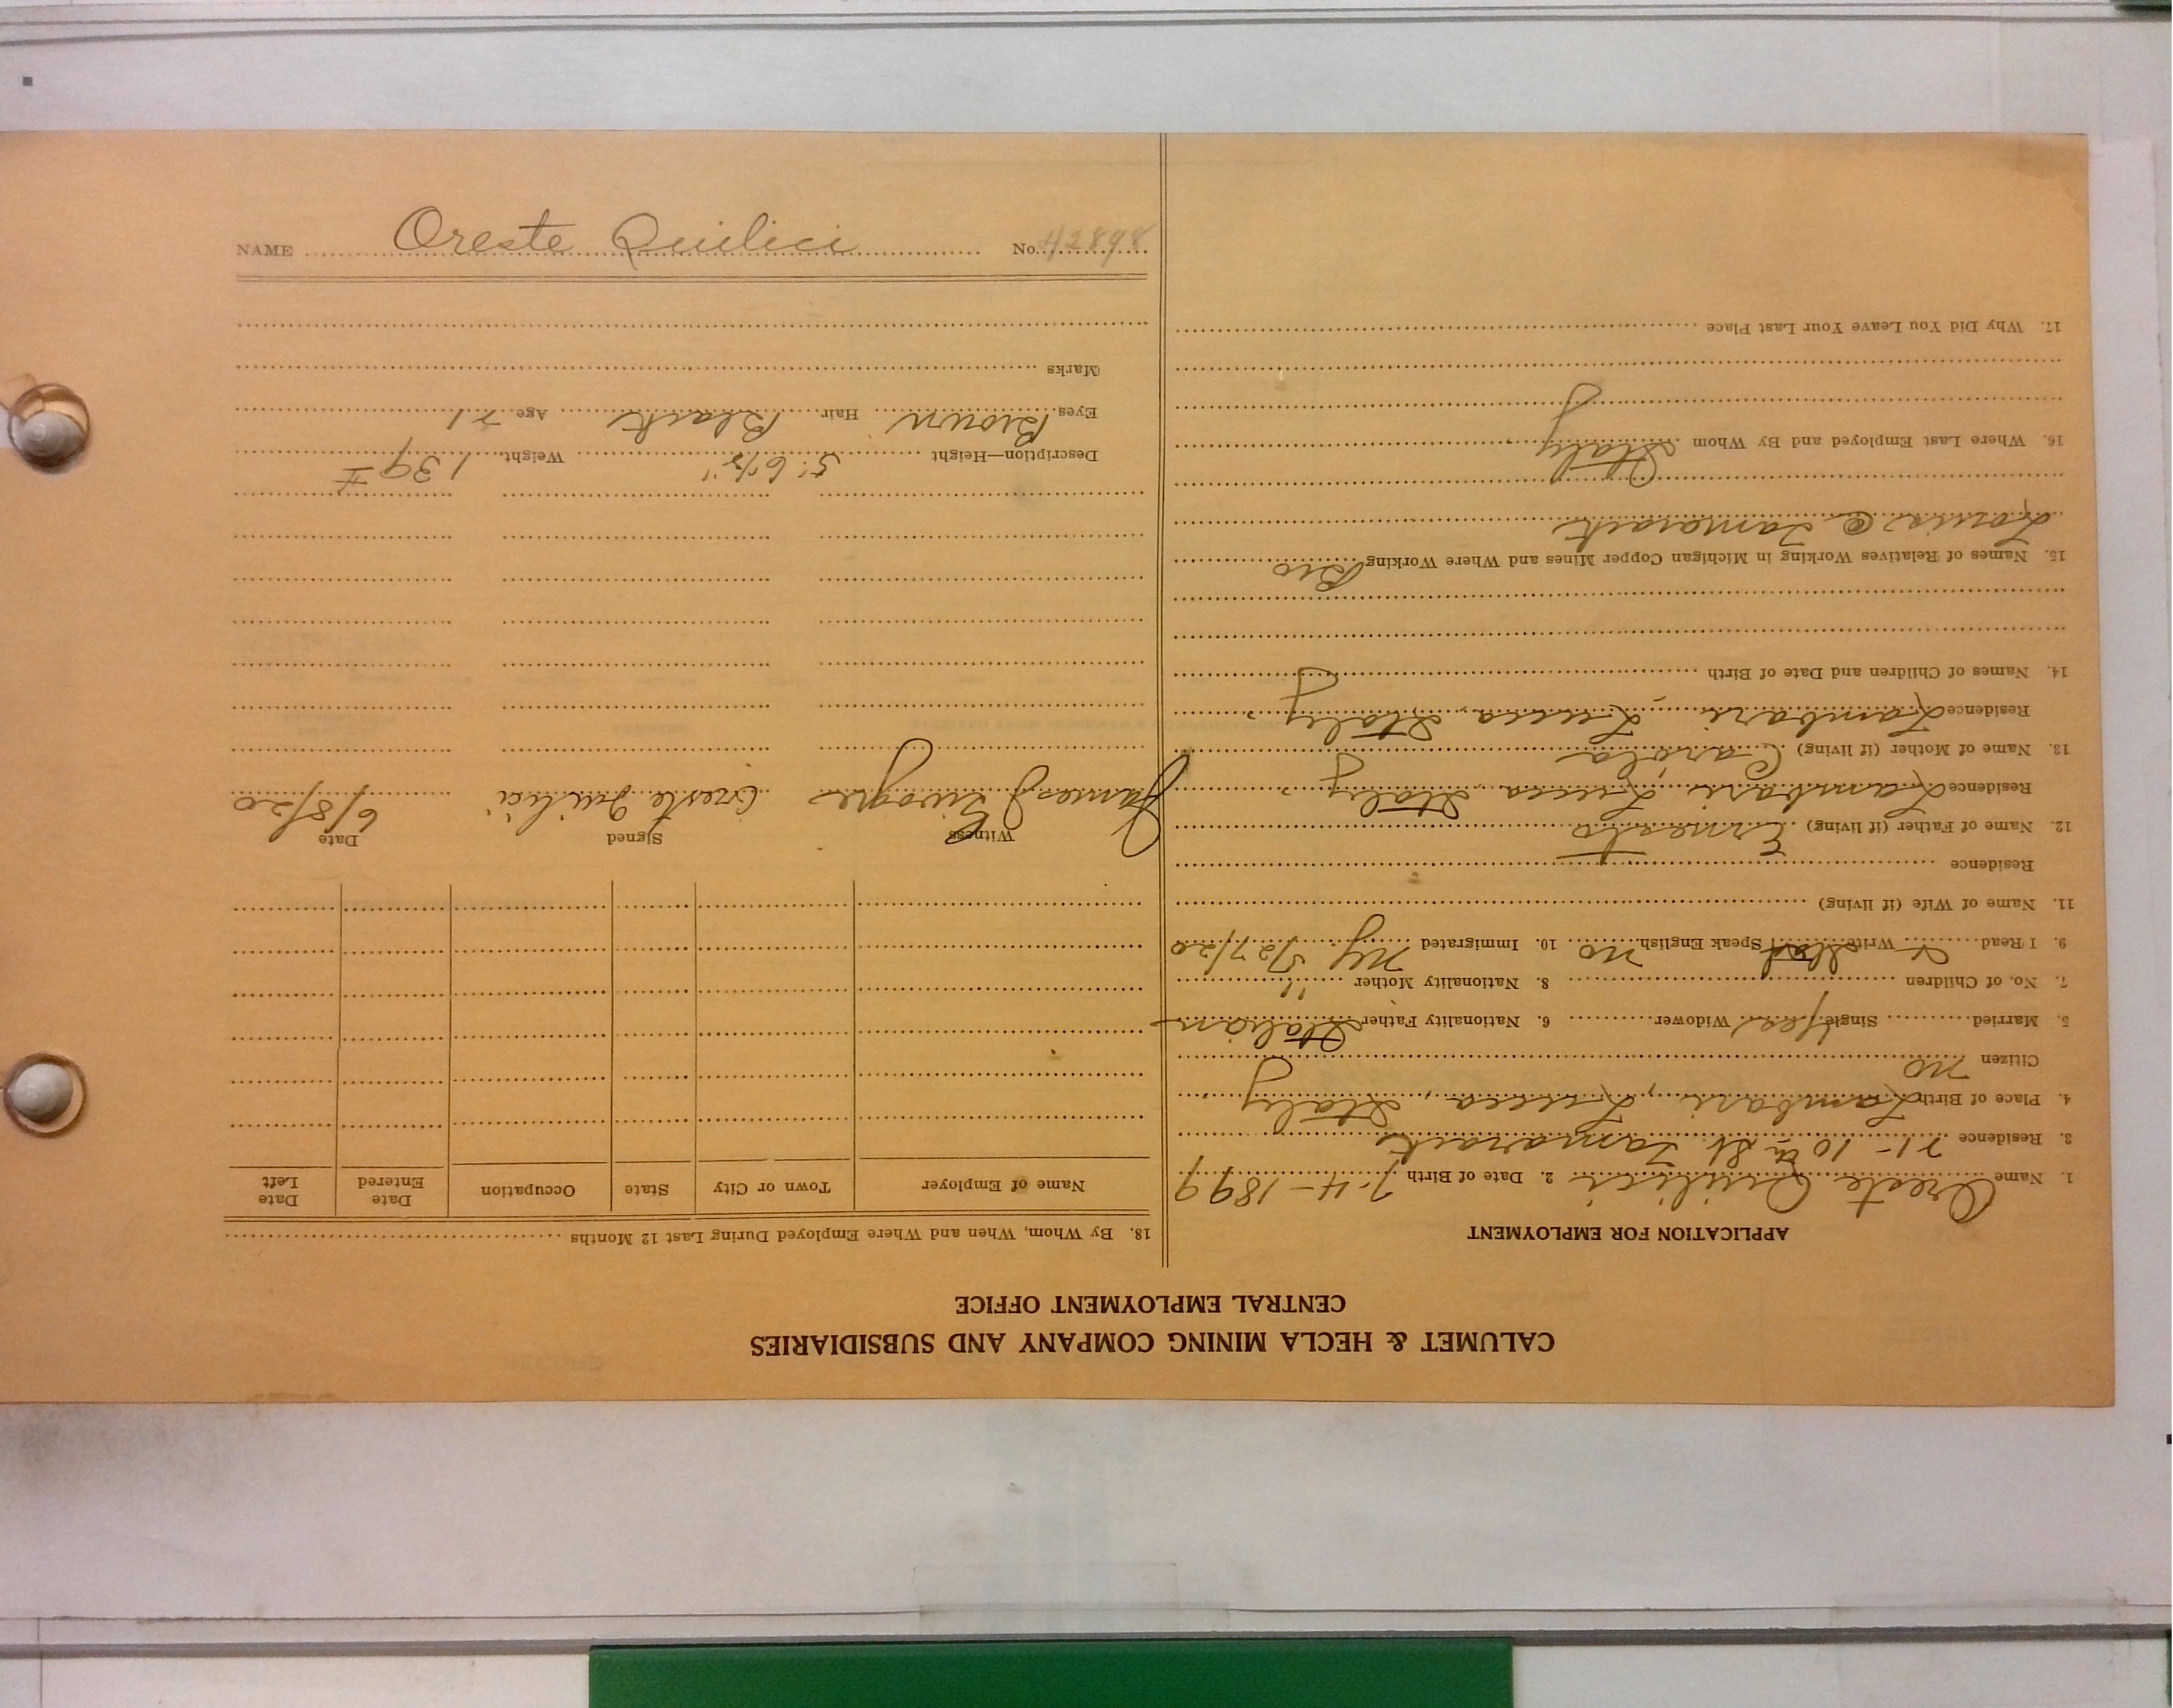 CALUMET & HECLA MINING COMPANY AND SUBSIDIARIES
CENTRAL EMPLOYMENT OFFICE
APPLICATION FOR EMPLOYMENT
1. Name Oreste Quilici 2. Date of Birth 7-4-1899
3. Residence 71-10th St Tamarack
4. Place of Birth Lambari, Lucca, Italy
Citizen no
5. Married Single Yes Widower 6. Nationality Father Italian
7. No. of Children 8. Nationality Mother "
9. I Read Write Speak English no 10. Immigrated NY 5/27/20
11. Name of Wife (if living)
Residence
12. Name of Father (if living) Ernesto
Residence Lambari, Lucca, Italy
13. Name of Mother (if living) Carola
Residence Lambari, Lucca, Italy
14. Names of Children and Date of Birth
15. Names of Relatives Working in Michigan Copper Mines and Where Working Bro
Louis @ Tamarack
16. Where Last Employed and By Whom Italy
17. Why Did You Leave Your Last Place
18. By Whom, When and Where Employed During Last 12 Months
Name of Employer Town or City State Occupation Date Entered Date Left
Witness Signed Date
James Oreste Quilici 6/8/20
Description—Height 5' 6½" Weight 139 #
Eyes Brown Hair Black Age 21
Marks
NAME Oreste Quilici No. 42898